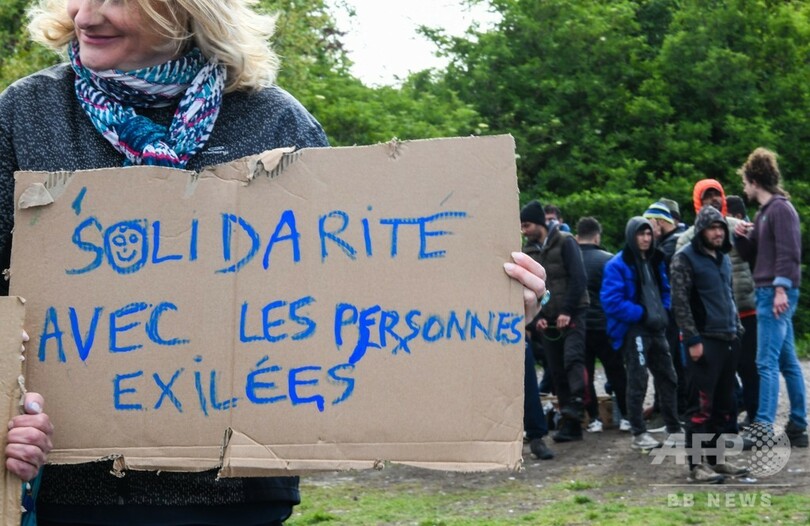 SOLIDARITÉ
AVEC LES PERSONNES
EXILÉES
AFP
BB NEWS